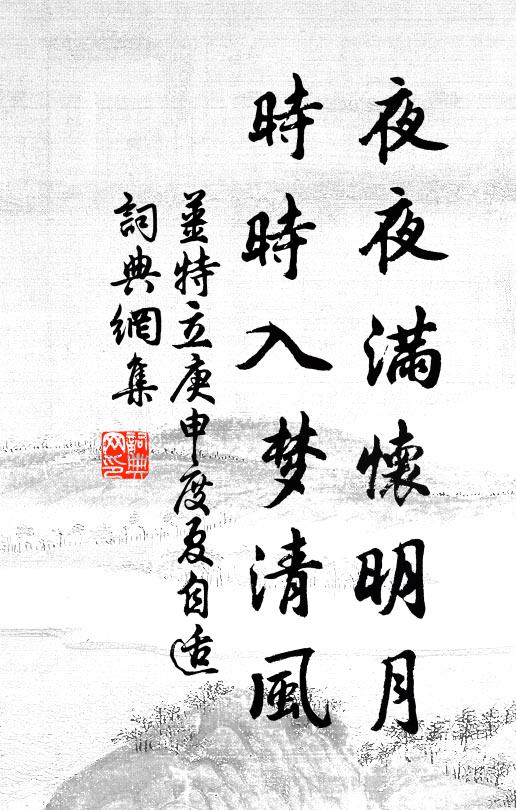 夜夜滿懷明月
時時入梦清風
姜特立庚申度夏自适
詞典網集
詞典网印